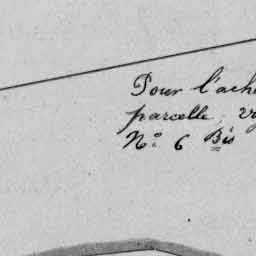 Pour l'ach
parcelle, v
N° 6 Bis